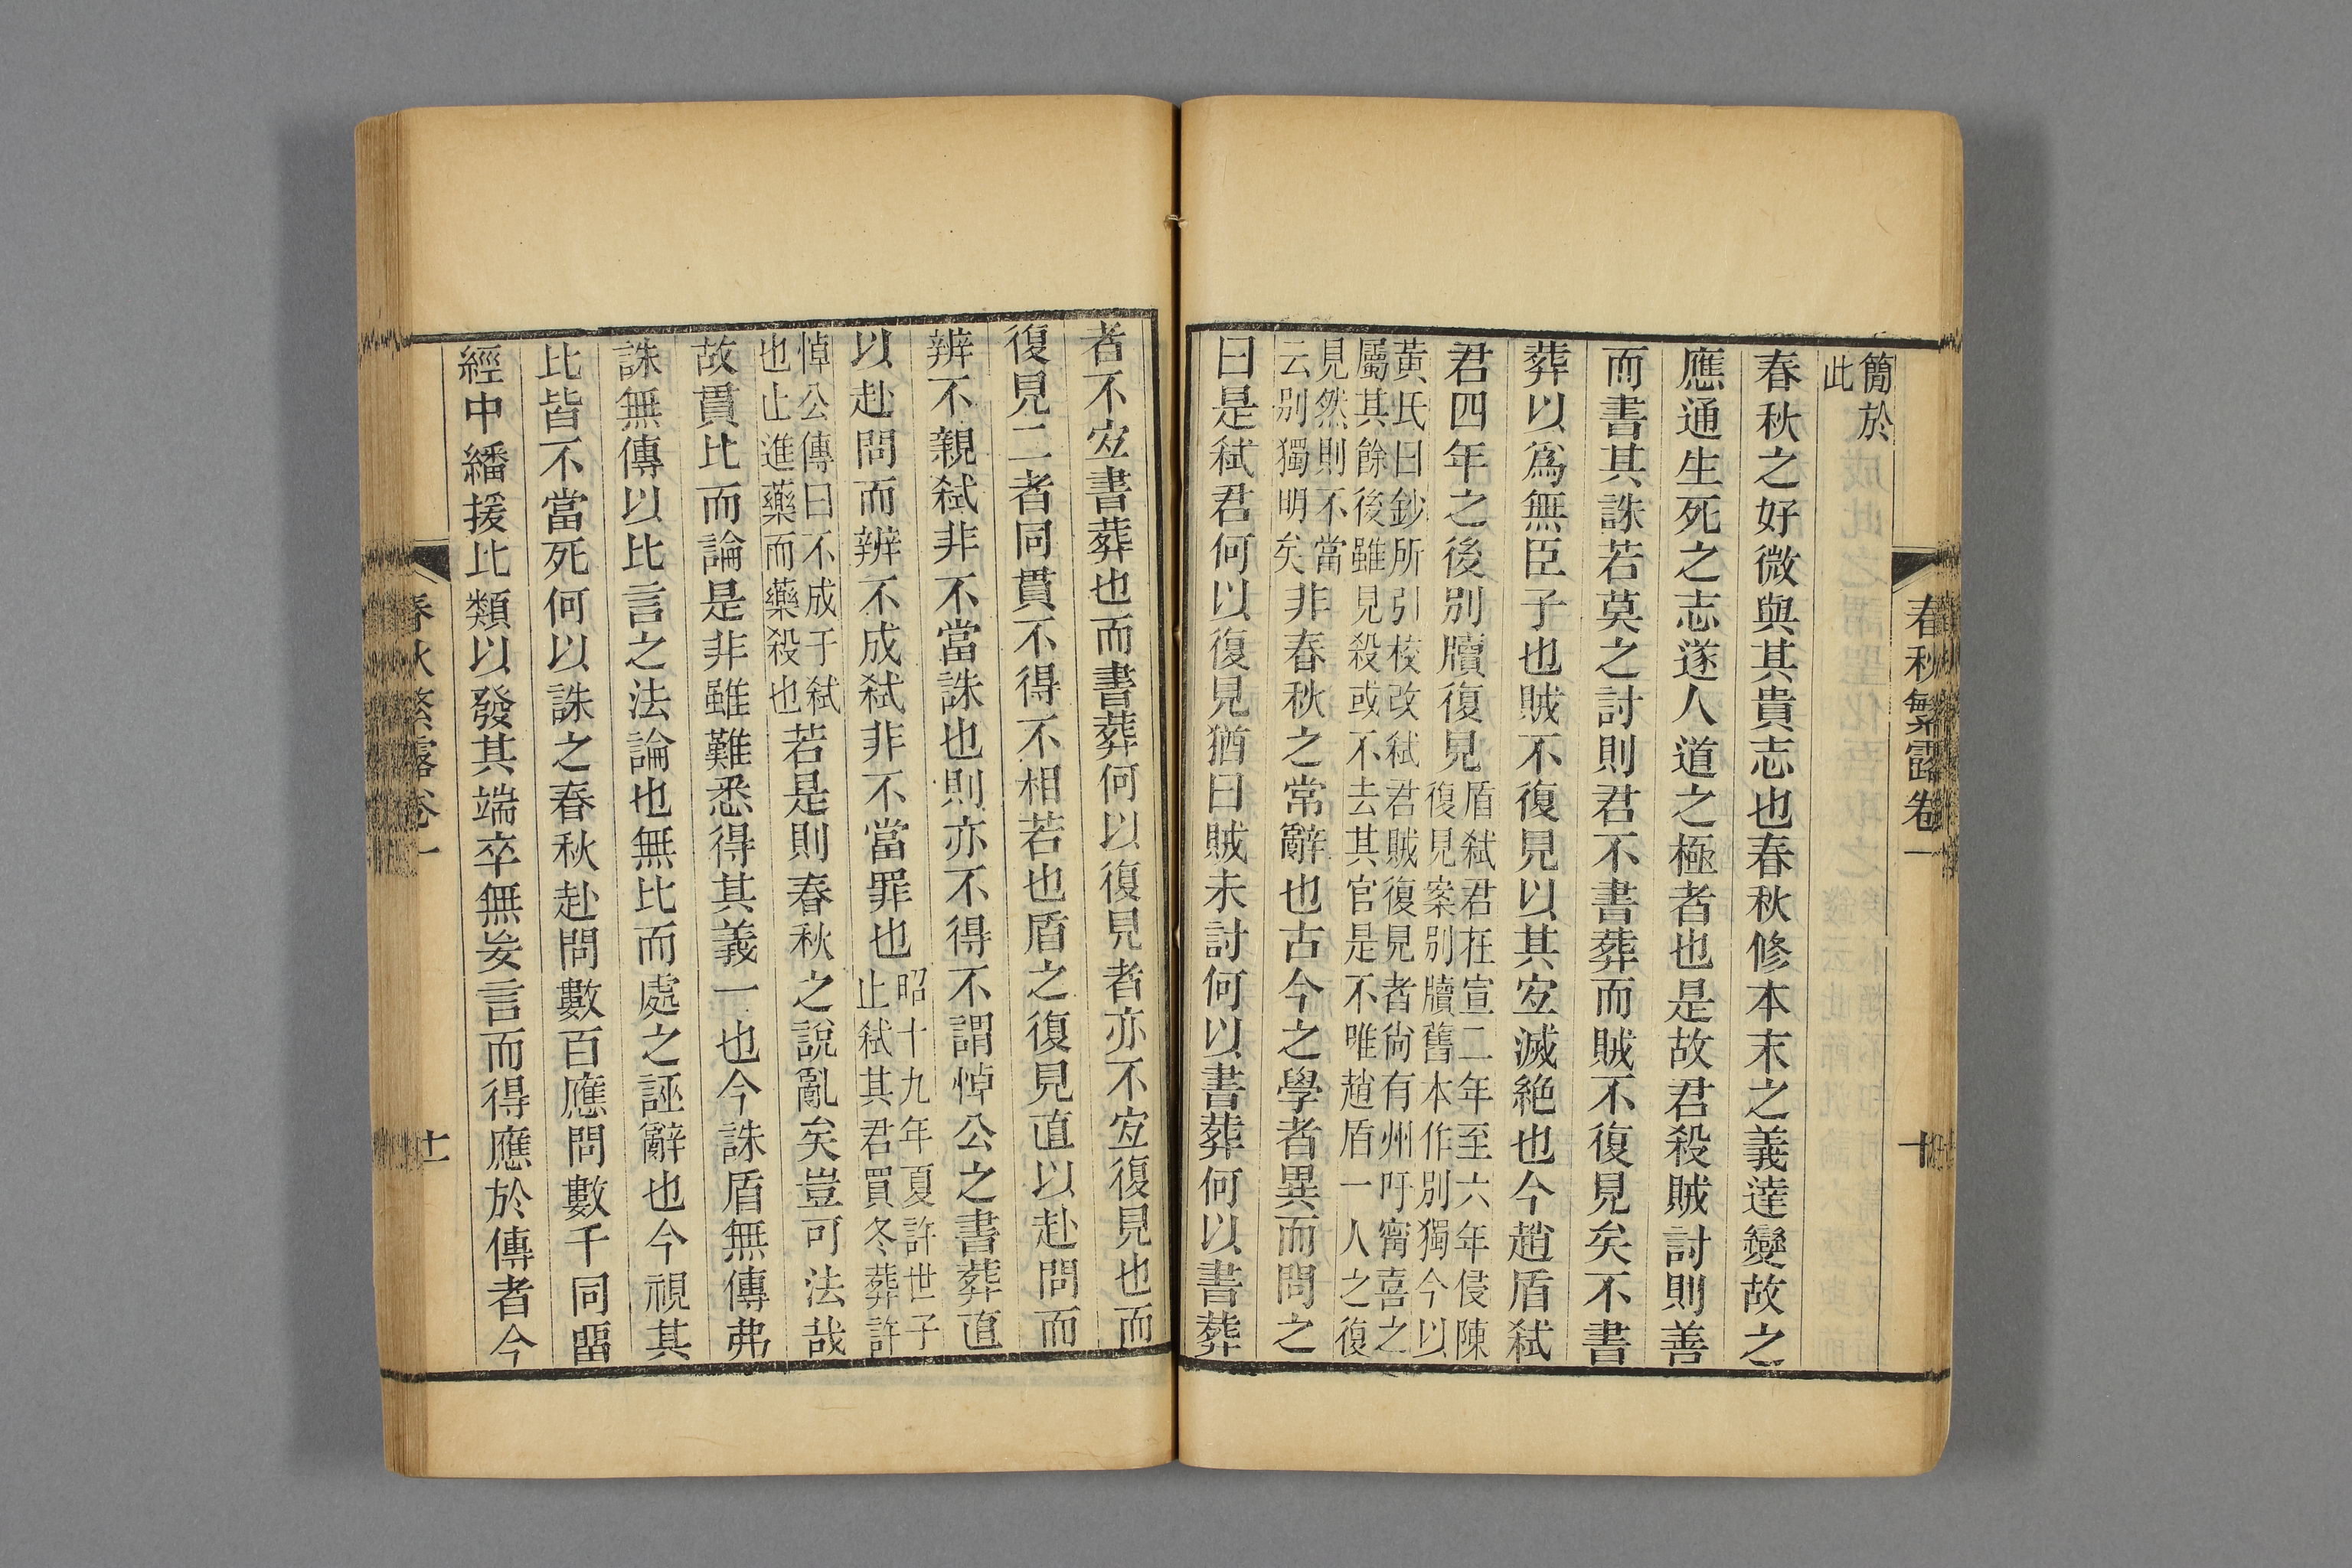 春秋繁露卷一
十
簡於
此
春秋之好微與其貴志也春秋修本末之義達變故之
應通生死之志遂人道之極者也是故君殺賊討則善
而書其誅若莫之討則君不書葬而賊不復見矣不書
葬以爲無臣子也賊不復見以其宐滅絶也今趙盾弑
君四年之後別牘復見盾弑君在宣二年至六年侵陳
復見案別牘舊本作別獨今以
黃氏日鈔所引校改弑君賊復見者尙有州吁甯喜之
屬其餘後雖見殺或不去其官是不唯趙盾一人之復
見然則不當
云別獨明矣非春秋之常辭也古今之學者異而問之
曰是弑君何以復見猶曰賊未討何以書葬何以書葬
者不宐書葬也而書葬何以復見者亦不宐復見也而
復見二者同貫不得不相若也盾之復見直以赴問而
辨不親弑非不當誅也則亦不得不謂悼公之書葬直
以赴問而辨不成弑非不當罪也昭十九年夏許世子
止弑其君買冬葬許
悼公傳曰不成于弑
也止進藥而藥殺也若是則春秋之說亂矣豈可法哉
故貫比而論是非雖難悉得其義一也今誅盾無傳弗
誅無傳以比言之法論也無比而處之誣辭也今視其
比皆不當死何以誅之春秋赴問數百應問數千同畱
經中繙援比類以發其端卒無妄言而得應於傳者今
春秋繁露卷一
十一